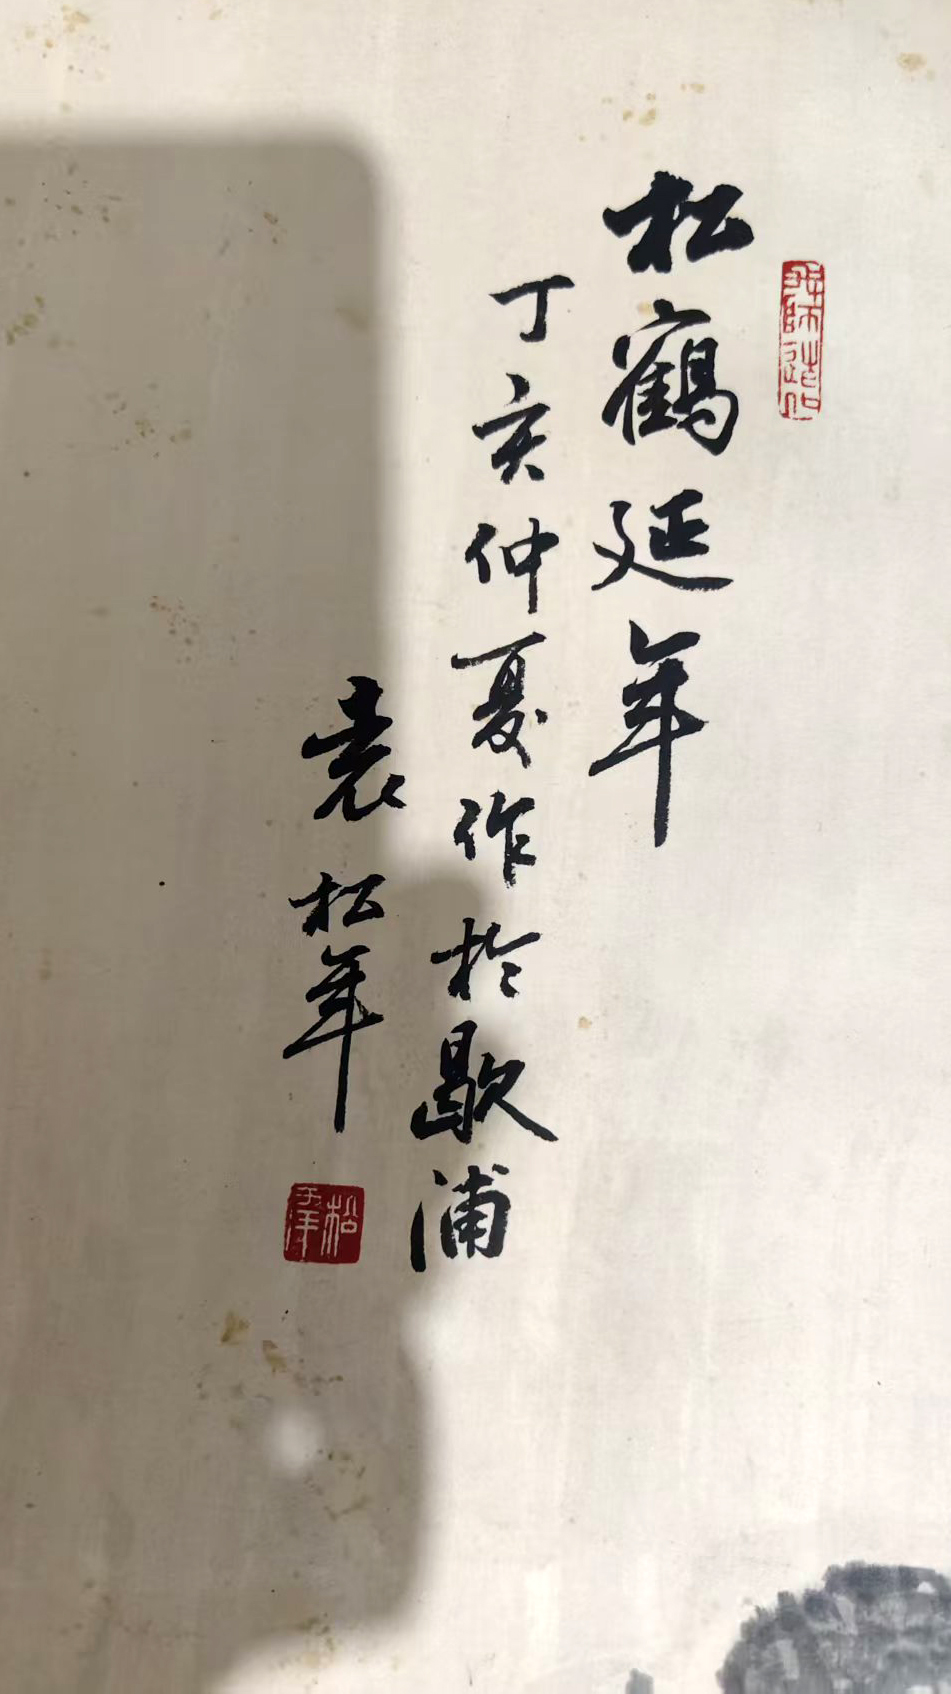 松鶴延年
丁亥仲夏作於歇浦
袁松年
松年